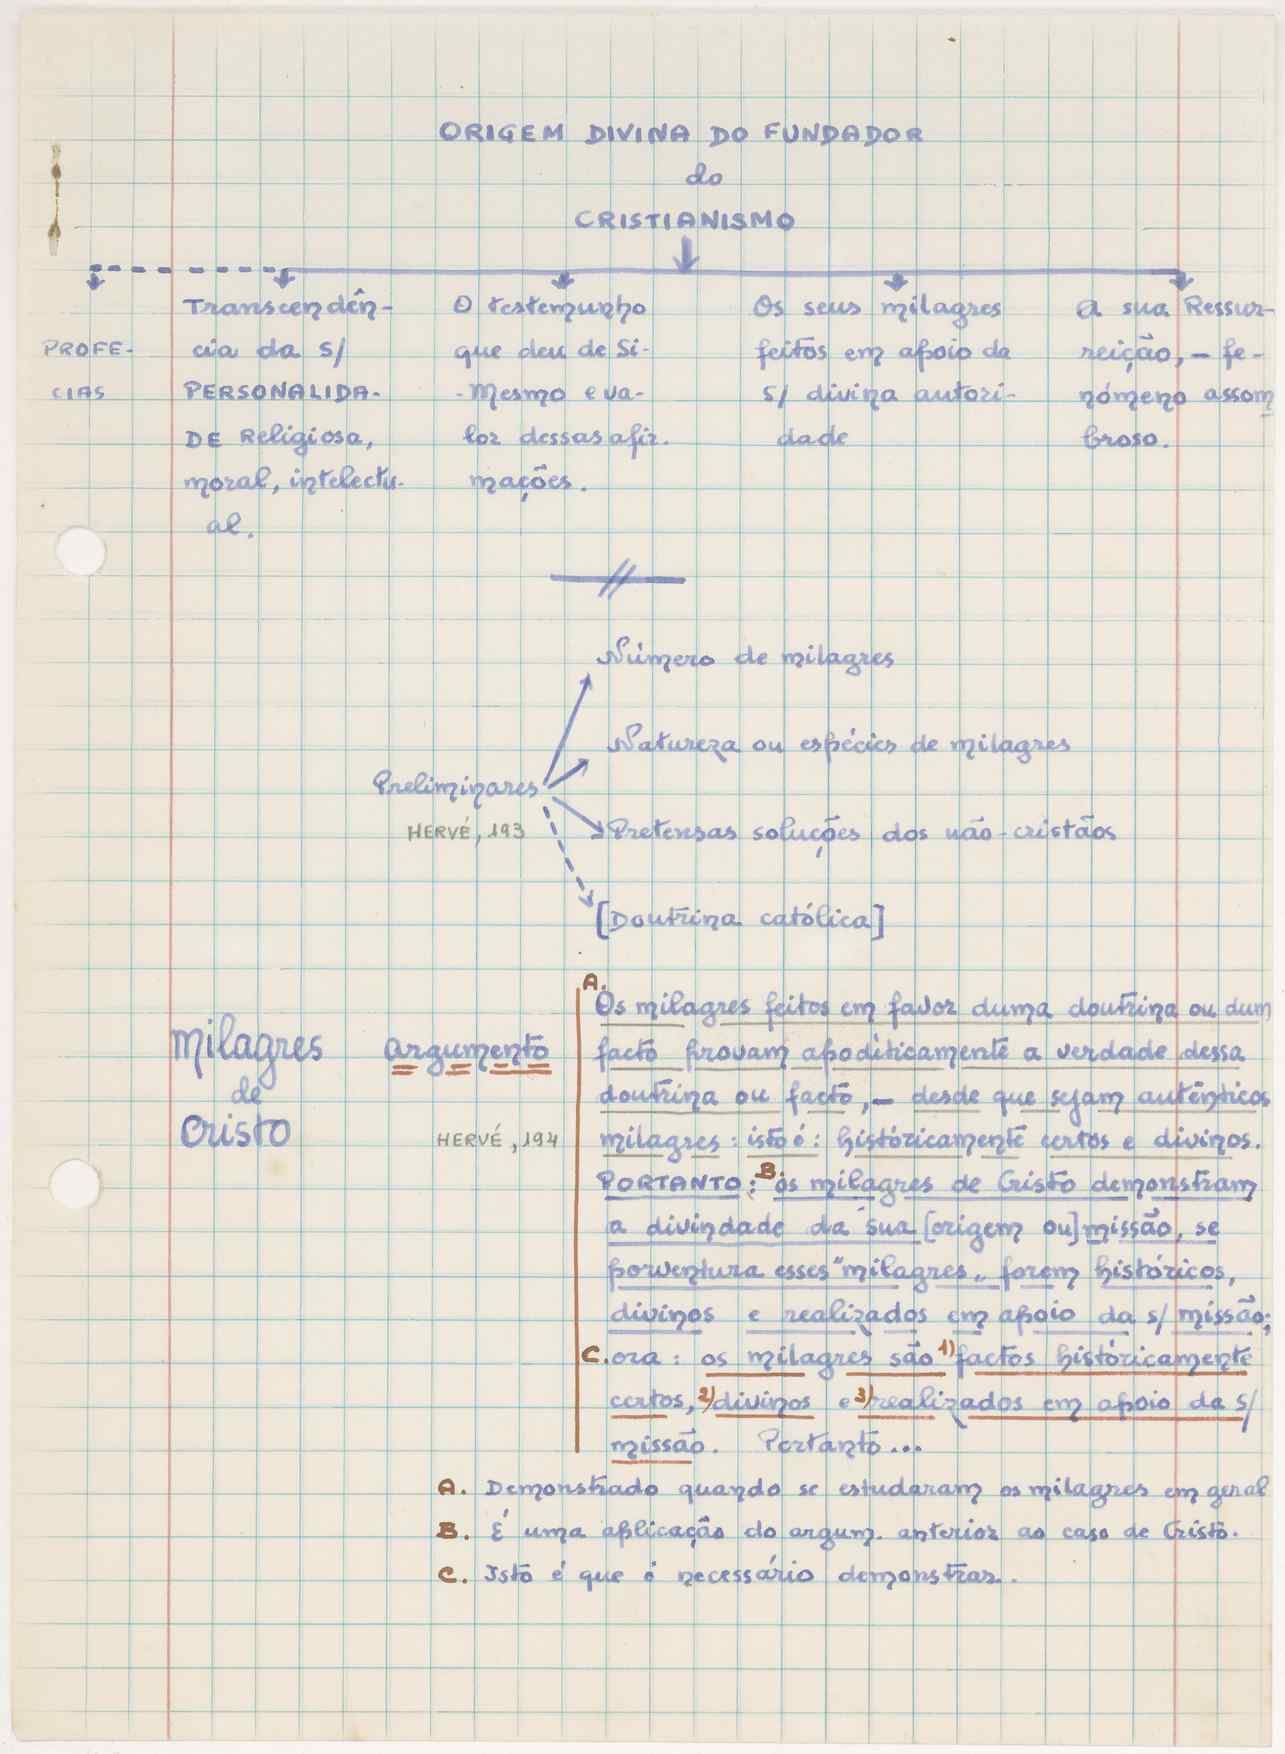 ORIGEM DIVINA DO FUNDADOR
do
CRISTIANISMO
PROFE-
CIAS
Transcendên-
cia da s/
PERSONALIDA-
DE Religiosa,
moral, intelectu-
al.
O testemunho
que deu de Si-
-Mesmo e va-
lor dessas afir-
mações.
Os seus milagres
feitos em apoio da
s/ divina autori-
dade
A sua Ressur-
reição, – fe-
nómeno assom
broso.
Número de milagres
Natureza ou espécies de milagres
Preliminares
HERVÉ, 193
Pretensas soluções dos não-cristãos
[Doutrina católica]
milagres
de
Cristo
argumento
HERVÉ, 194
A.
Os milagres feitos em favor duma doutrina ou dum
facto provam apodìticamente a verdade dessa
doutrina ou facto, – desde que sejam autênticos
milagres: isto é: històricamente certos e divinos.
PORTANTO: B os milagres de Cristo demonstram
a divindade da sua [origem ou] missão, se
porventura esses "milagres" forem históricos,
divinos e realizados em apoio da s/ missão;
C. ora: os milagres são 1) factos històricamente
certos, 2) divinos e 3) realizados em apoio da s/
missão. Portanto...
A. Demonstrado quando se estudaram os milagres em geral
B. É uma aplicação do argum. anterior ao caso de Cristo.
C. Isto é que é necessário demonstrar.